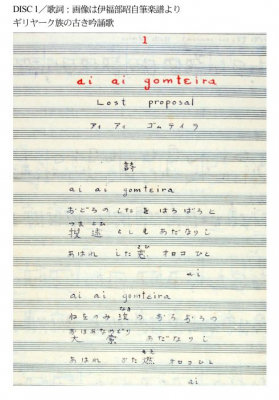 DISC 1／歌詞：画像は伊福部昭自筆楽譜より
ギリヤーク族の古き吟誦歌
1
ai ai gomteira
Lost proposal
アイ アイ ゴムテイラ
詩
ai ai gomteira
おどろのしたをはろばろと
としもあだなりし
あはれ した オロコひと
ai
ai ai gomteira
の おろおろの
あだなりし
あはれ がた 燃 オロコひと
ai